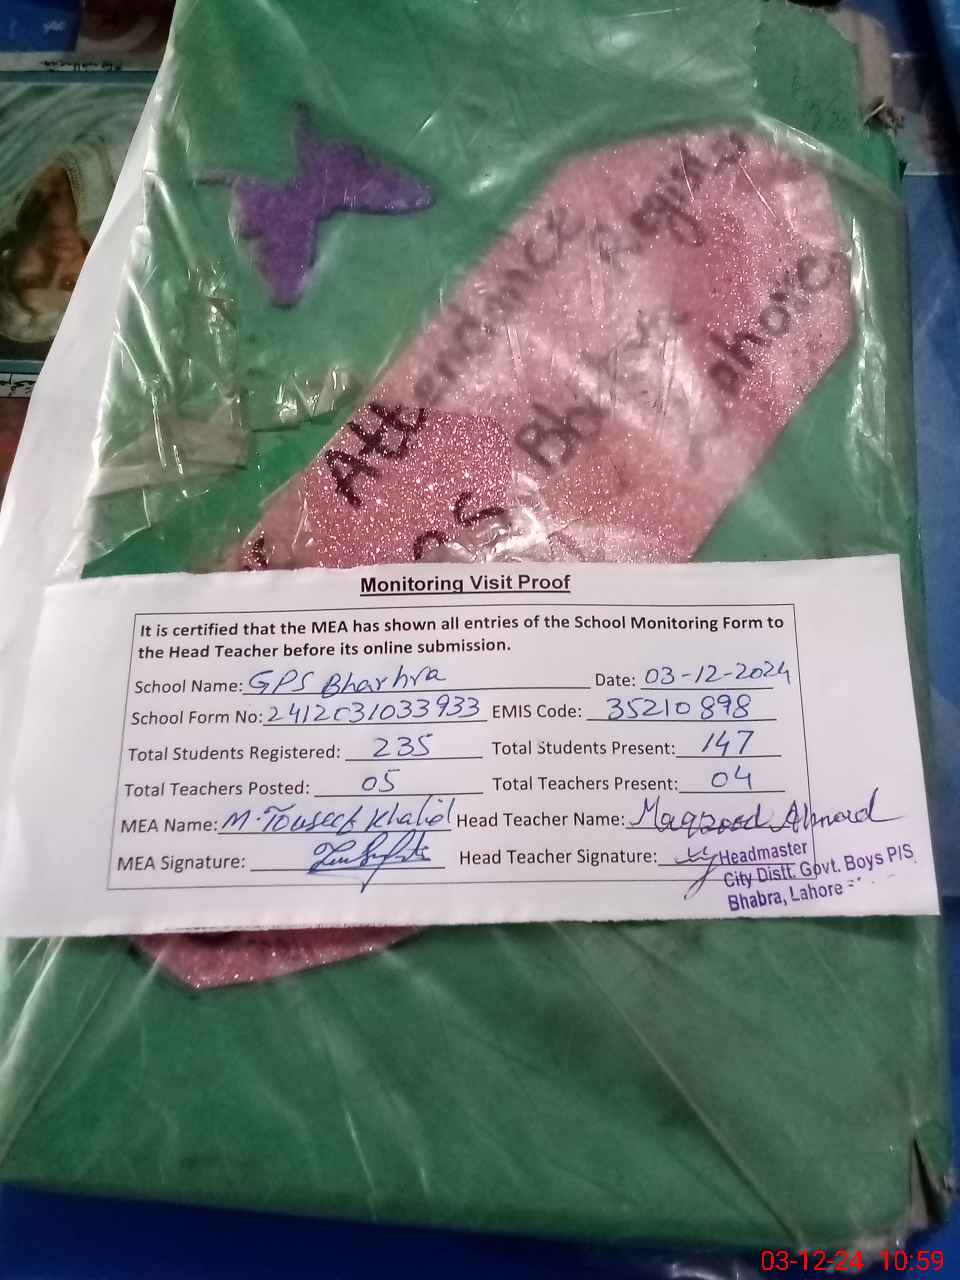 Attendance Register
GPS Bhabra
Lahore
Monitoring Visit Proof
It is certified that the MEA has shown all entries of the School Monitoring Form to
the Head Teacher before its online submission.
School Name: GPS Bharhra Date: 03-12-2024
School Form No: 2412031033933 EMIS Code: 35210898
Total Students Registered: 235 Total Students Present: 147
Total Teachers Posted: 05 Total Teachers Present: 04
MEA Name: M. Touseef Khalid Head Teacher Name: Maqsood Ahmad
MEA Signature: Head Teacher Signature:
Headmaster
City Distt. Govt. Boys P/S
Bhabra, Lahore
03-12-24 10:59